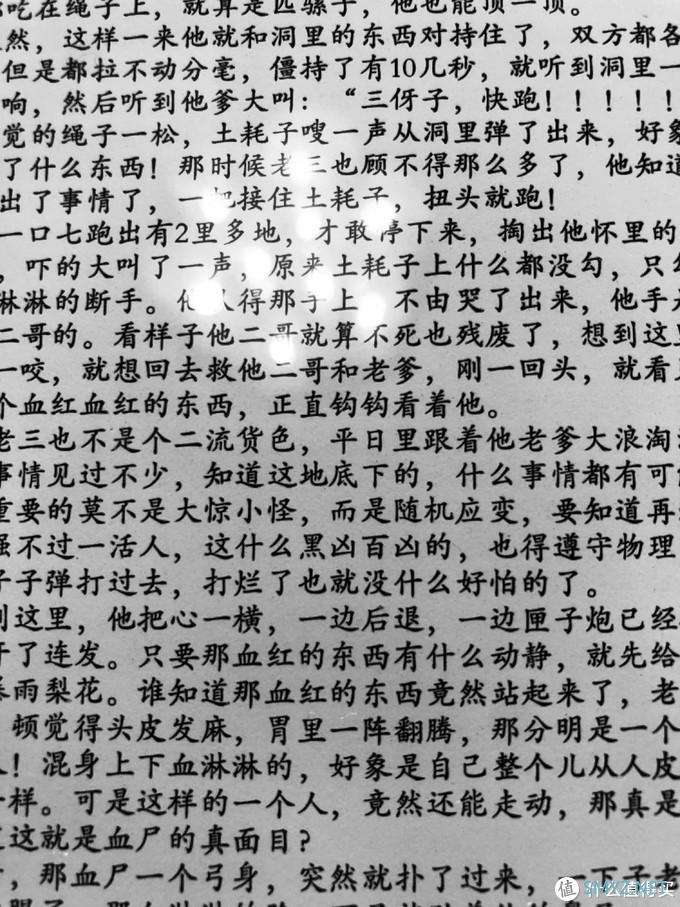 吃在绳子上，就算是匹骡子，他也能顶一顶。
然，这样一来他就和洞里的东西对持住了，双方都各
但是都拉不动分毫，僵持了有10几秒，就听到洞里一
响，然后听到他爹大叫：“三伢子，快跑！！！！！
觉的绳子一松，土耗子嗖一声从洞里弹了出来，好象
了什么东西！那时候老三也顾不得那么多了，他知道
出了事情了，一把接住土耗子，扭头就跑！
一口七跑出有2里多地，才敢停下来，掏出他怀里的
，吓的大叫了一声，原来土耗子上什么都没勾，只勾
淋淋的断手。他认得那手上 不由哭了出来，他手是
二哥的。看样子他二哥就算不死也残废了，想到这里
一咬，就想回去救他二哥和老爹，刚一回头，就看见
个血红血红的东西，正直钩钩看着他。
老三也不是个二流货色，平日里跟着他老爹大浪淘沙
事情见过不少，知道这地底下的，什么事情都有可能
重要的莫不是大惊小怪，而是随机应变，要知道再
强不过一活人，这什么黑凶百凶的，也得遵守物理
子子弹打过去，打烂了也就没什么好怕的了。
到这里，他把心一横，一边后退，一边匣子炮已经
开了连发。只要那血红的东西有什么动静，就先给
暴雨梨花。谁知道那血红的东西竟然站起来了，老
顿觉得头皮发麻，胃里一阵翻腾，那分明是一个
人！混身上下血淋淋的，好象是自己整个儿从人皮
一样。可是这样的一个人，竟然还能走动，那真是
这就是血尸的真面目？
，那血尸一个弓身，突然就扑了过来，一下子老
值 什么值得买